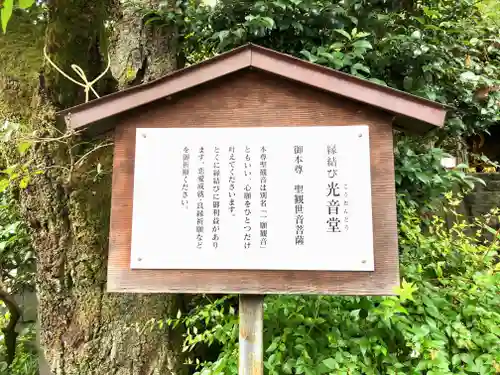 縁結び 光音堂
こうおんどう
御本尊 聖観世音菩薩
本尊聖観音は別名「一願観音」
ともいい、心願をひとつだけ
叶えてくださいます。
とくに縁結びに御利益があり
ます。恋愛成就・良縁祈願など
を御祈願ください。